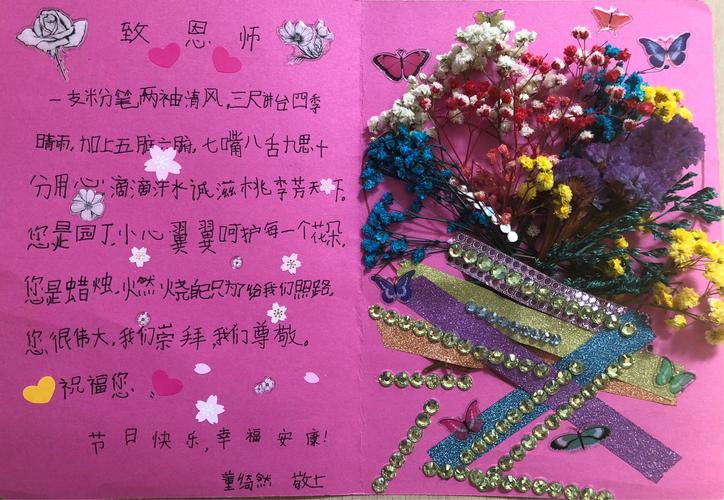 致恩师
一支粉笔,两袖清风,三尺讲台四季
晴雨,加上五脏六腑,七嘴八舌九思十
分用心,滴滴汗水诚滋桃李芳天下。
您是园丁,小心翼翼呵护每一个花朵,
您是蜡烛,火然烧自己只为了给我们照路,
您很伟大,我们崇拜,我们尊敬。
祝福您、
节日快乐,幸福安康!
董绮然 敬上